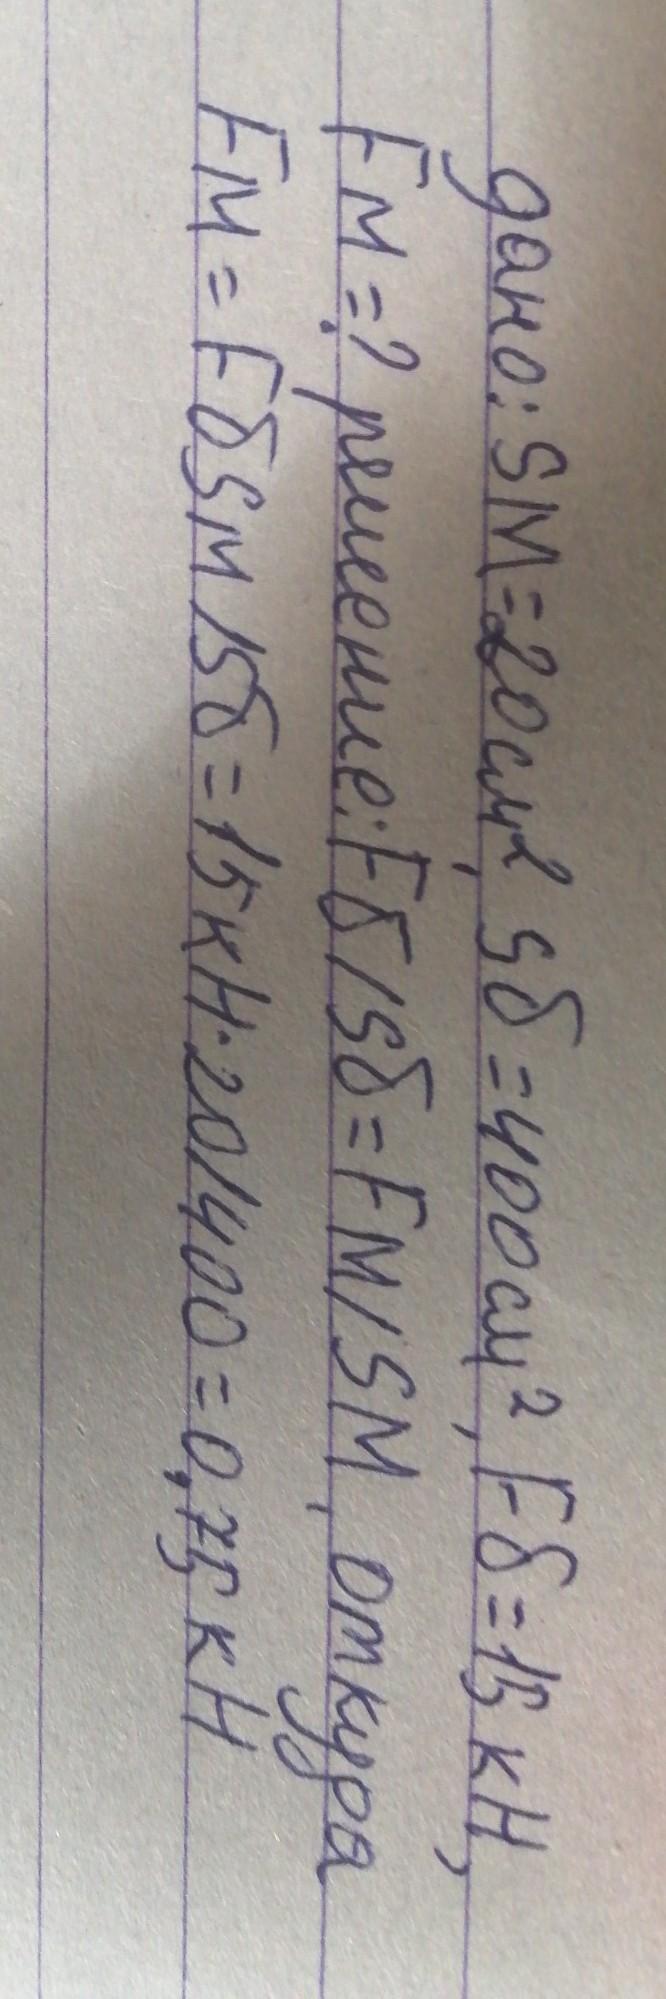 дано: SM=20см², Sб=400см², Fб=15 кН,
FM=? решение: Fб/Sб=FM/SM, откуда
FM=FбSM/Sб=15кН·20/400=0,75кН